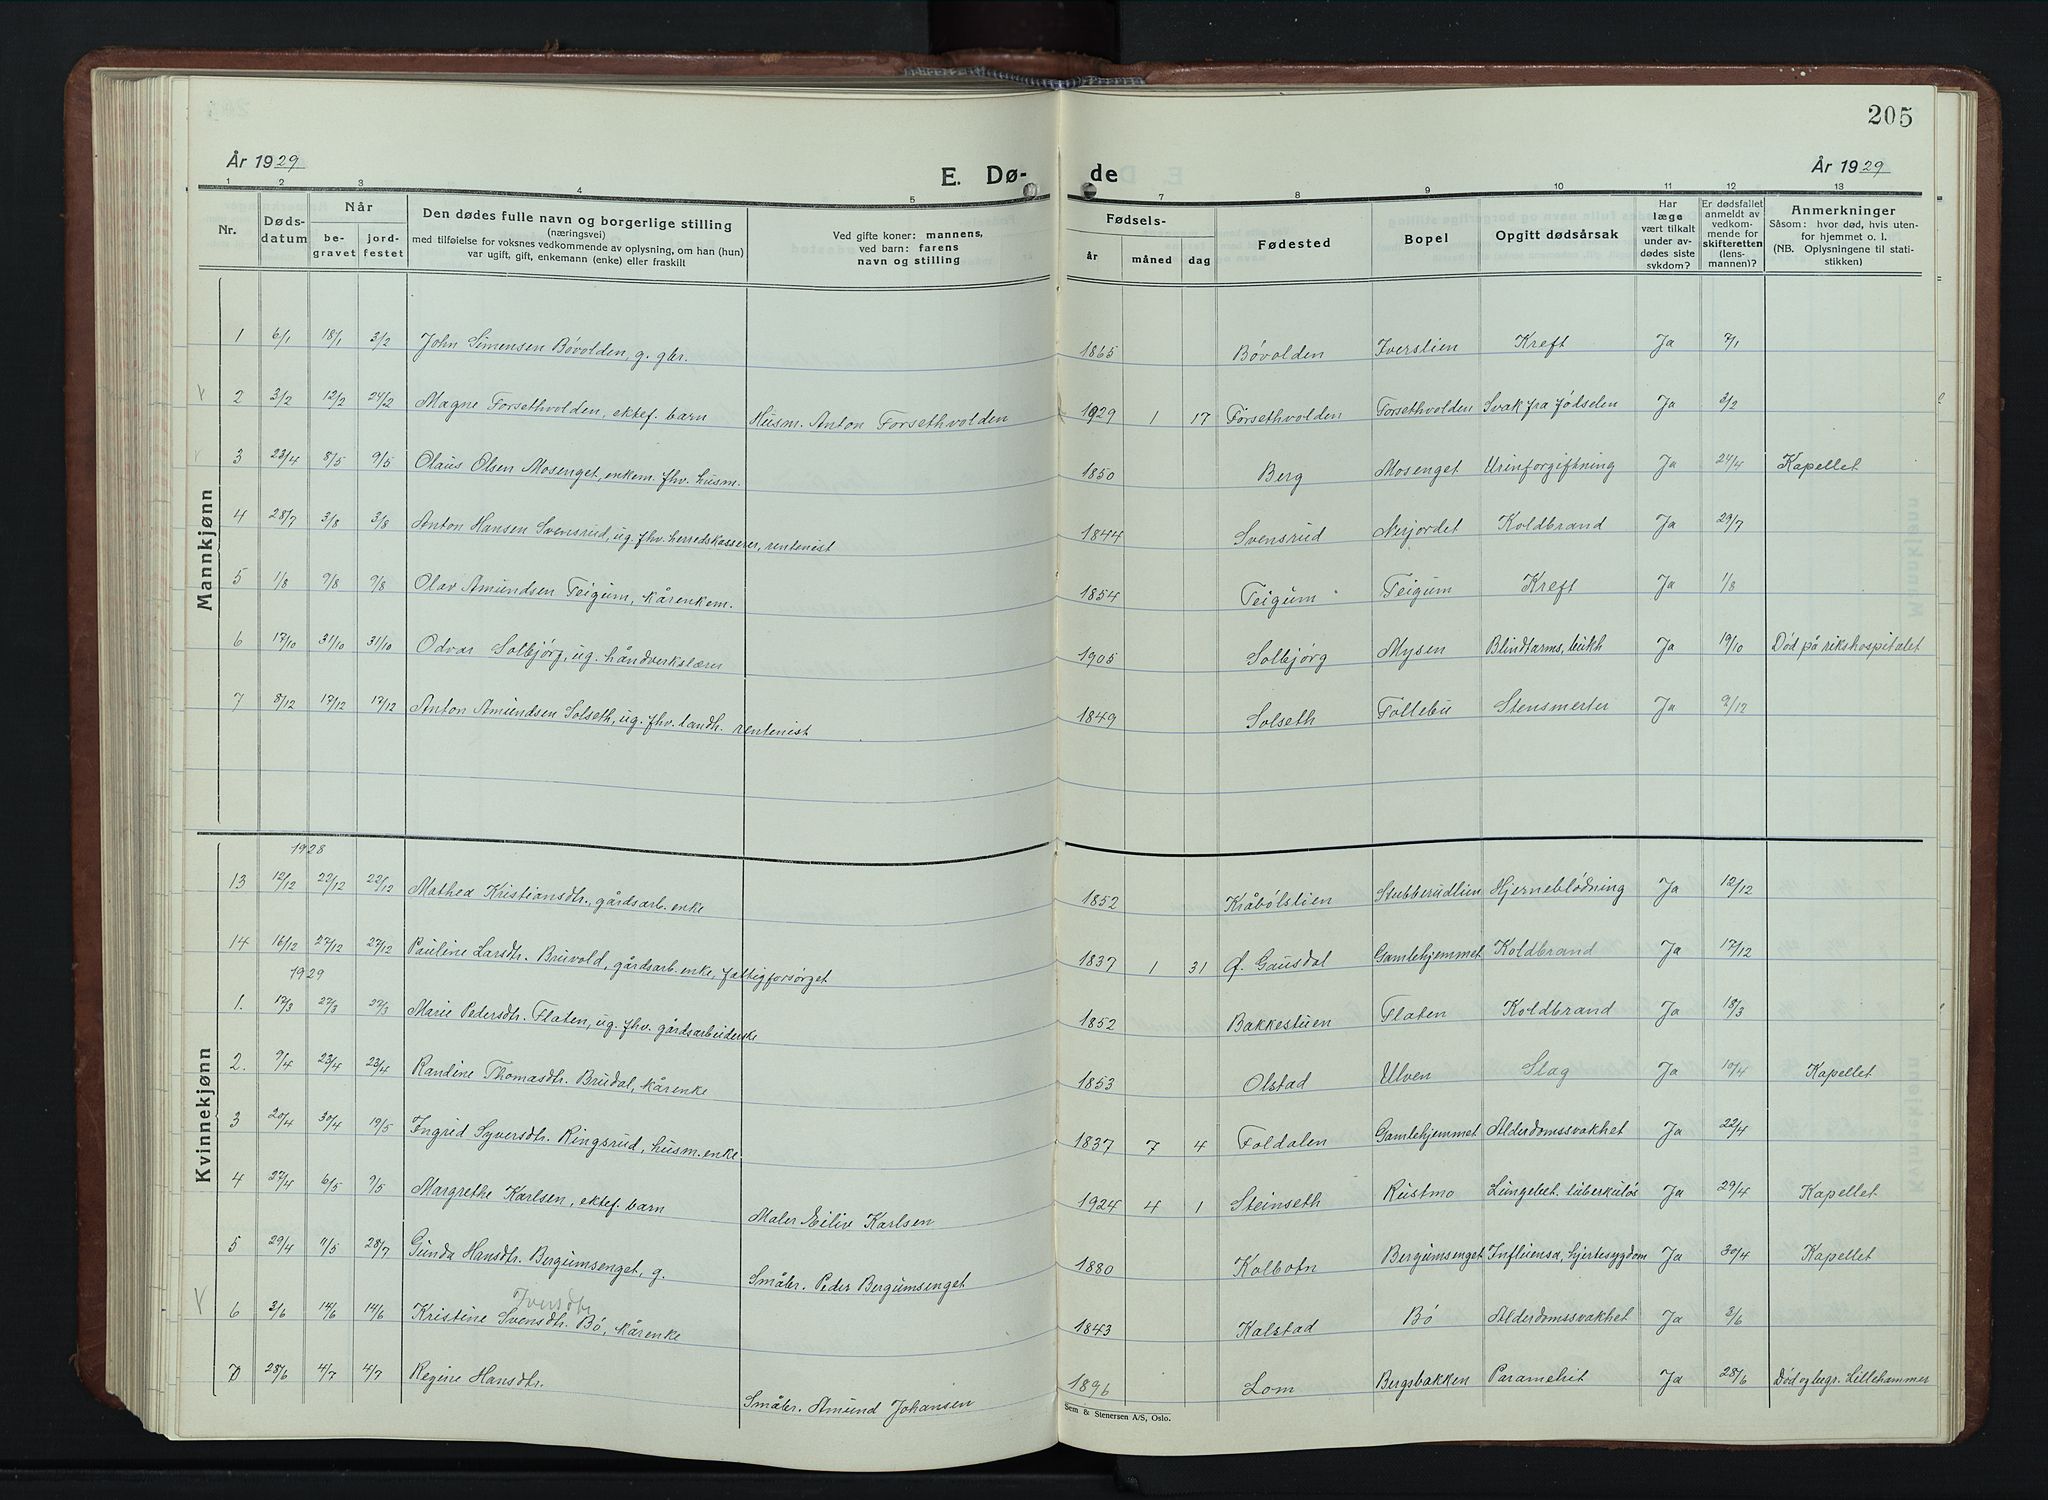 205
År 1929 E. Dø- de År 1929
1 2 3 4 5 7 8 9 10 11 12 13
Nr. Døds-datum Når be-gravet jord-festet Den dødes fulle navn og borgerlige stilling (næringsvei) med tilføielse for voksnes vedkommende av oplysning, om han (hun) var ugift, gift, enkemann (enke) eller fraskilt Ved gifte koner: mannens, ved barn: farens navn og stilling Fødsels- år måned dag Fødested Bopel Opgitt dødsårsak Har læge vært tilkalt under av-dødes siste sykdom? Er dødsfallet anmeldt av vedkom-mende for skifteretten (lens-mannen)? Anmerkninger Såsom: hvor død, hvis uten-for hjemmet o. l. (NB. Oplysningene til stati-stikken)
Mannkjønn
1 6/1 18/1 3/2 John Simensen Bøvolden, g. gbr. 1865 Bøvolden Iverslien Kreft Ja 7/1
2 3/2 12/2 24/2 Magne Forsethvolden, ektef. barn Husm. Anton Forsethvolden 1929 1 17 Forsethvolden Forsethvolden Svak fra fødselen Ja 3/2
3 23/4 8/5 9/5 Olaus Olsen Mosenget, enkem. fhv. husm. 1850 Berg Mosenget Urinforgiftning Ja 24/4 Kapellet
4 28/7 3/8 3/8 Anton Hansen Svensrud, ug. fhv. herredskasserer, rentenist 1844 Svensrud Nerjordet Koldbrand Ja 29/7
5 1/8 9/8 9/8 Olav Amundsen Teigum, kårenkem. 1854 Teigum Teigum Kreft Ja 1/8
6 17/10 31/10 31/10 Odvar Solbjørg, ug. håndverkslærer 1905 Solbjørg Mysen Blindtarms, bukh Ja 19/10 Død på rikshospitalet
7 8/12 17/12 17/12 Anton Amundsen Solseth, ug. fhv. landh. rentenist 1849 Solseth Follebu Stensmerter Ja 9/12
Kvinnekjønn
1928
13 12/12 22/12 22/12 Mathea Kristiansdtr., gårdsarb. enke 1852 Kråbølslien Stubberudlien Hjerneblødning Ja 12/12
14 16/12 27/12 27/12 Pauline Larsdtr. Bruvold, gårdsarb. enke, fattigforsørget 1837 1 31 Ø. Gausdal Gamlehjemmet Koldbrand Ja 17/12
1929
1. 17/3 27/3 27/3 Marie Pedersdtr. Flaten, ug. fhv. gårdsarbeiderske 1852 Bakkestuen Flaten Koldbrand Ja 18/3
2. 9/4 23/4 23/4 Randine Thomasdtr. Brudal, kårenke 1853 Olstad Ulven Slag Ja 10/4 Kapellet
3 20/4 30/4 19/5 Ingrid Syversdtr. Ringsrud, husm. enke 1837 7 4 Foldalen Gamlehjemmet Alderdomssvakhet Ja 22/4
4 27/4 6/5 9/5 Margrethe Karlsen, ektef. barn Maler Eiliv Karlsen 1924 4 1 Steinseth Rustmo Lungebet. tuberkuløs Ja 29/4 Kapellet
5 29/4 7/5 28/7 Gunda Hansdtr. Bergumsenget, g. Småbr. Peder Bergumsenget 1880 Kolbotn Bergumsenget Influensa, hjertesygdom Ja 30/4 Kapellet
Iversdtr
6 3/6 14/6 14/6 Kristine Svensdtr. Bø, kårenke 1843 Kalstad Bø Alderdomssvakhet Ja 3/6
7 28/6 4/7 4/7 Regine Hansdtr. Småbr. Amund Johansen 1896 Lom Bergsbakken Ja 28/6 Død og begr. Lillehammer
Sem & Stenersen A/S, Oslo.